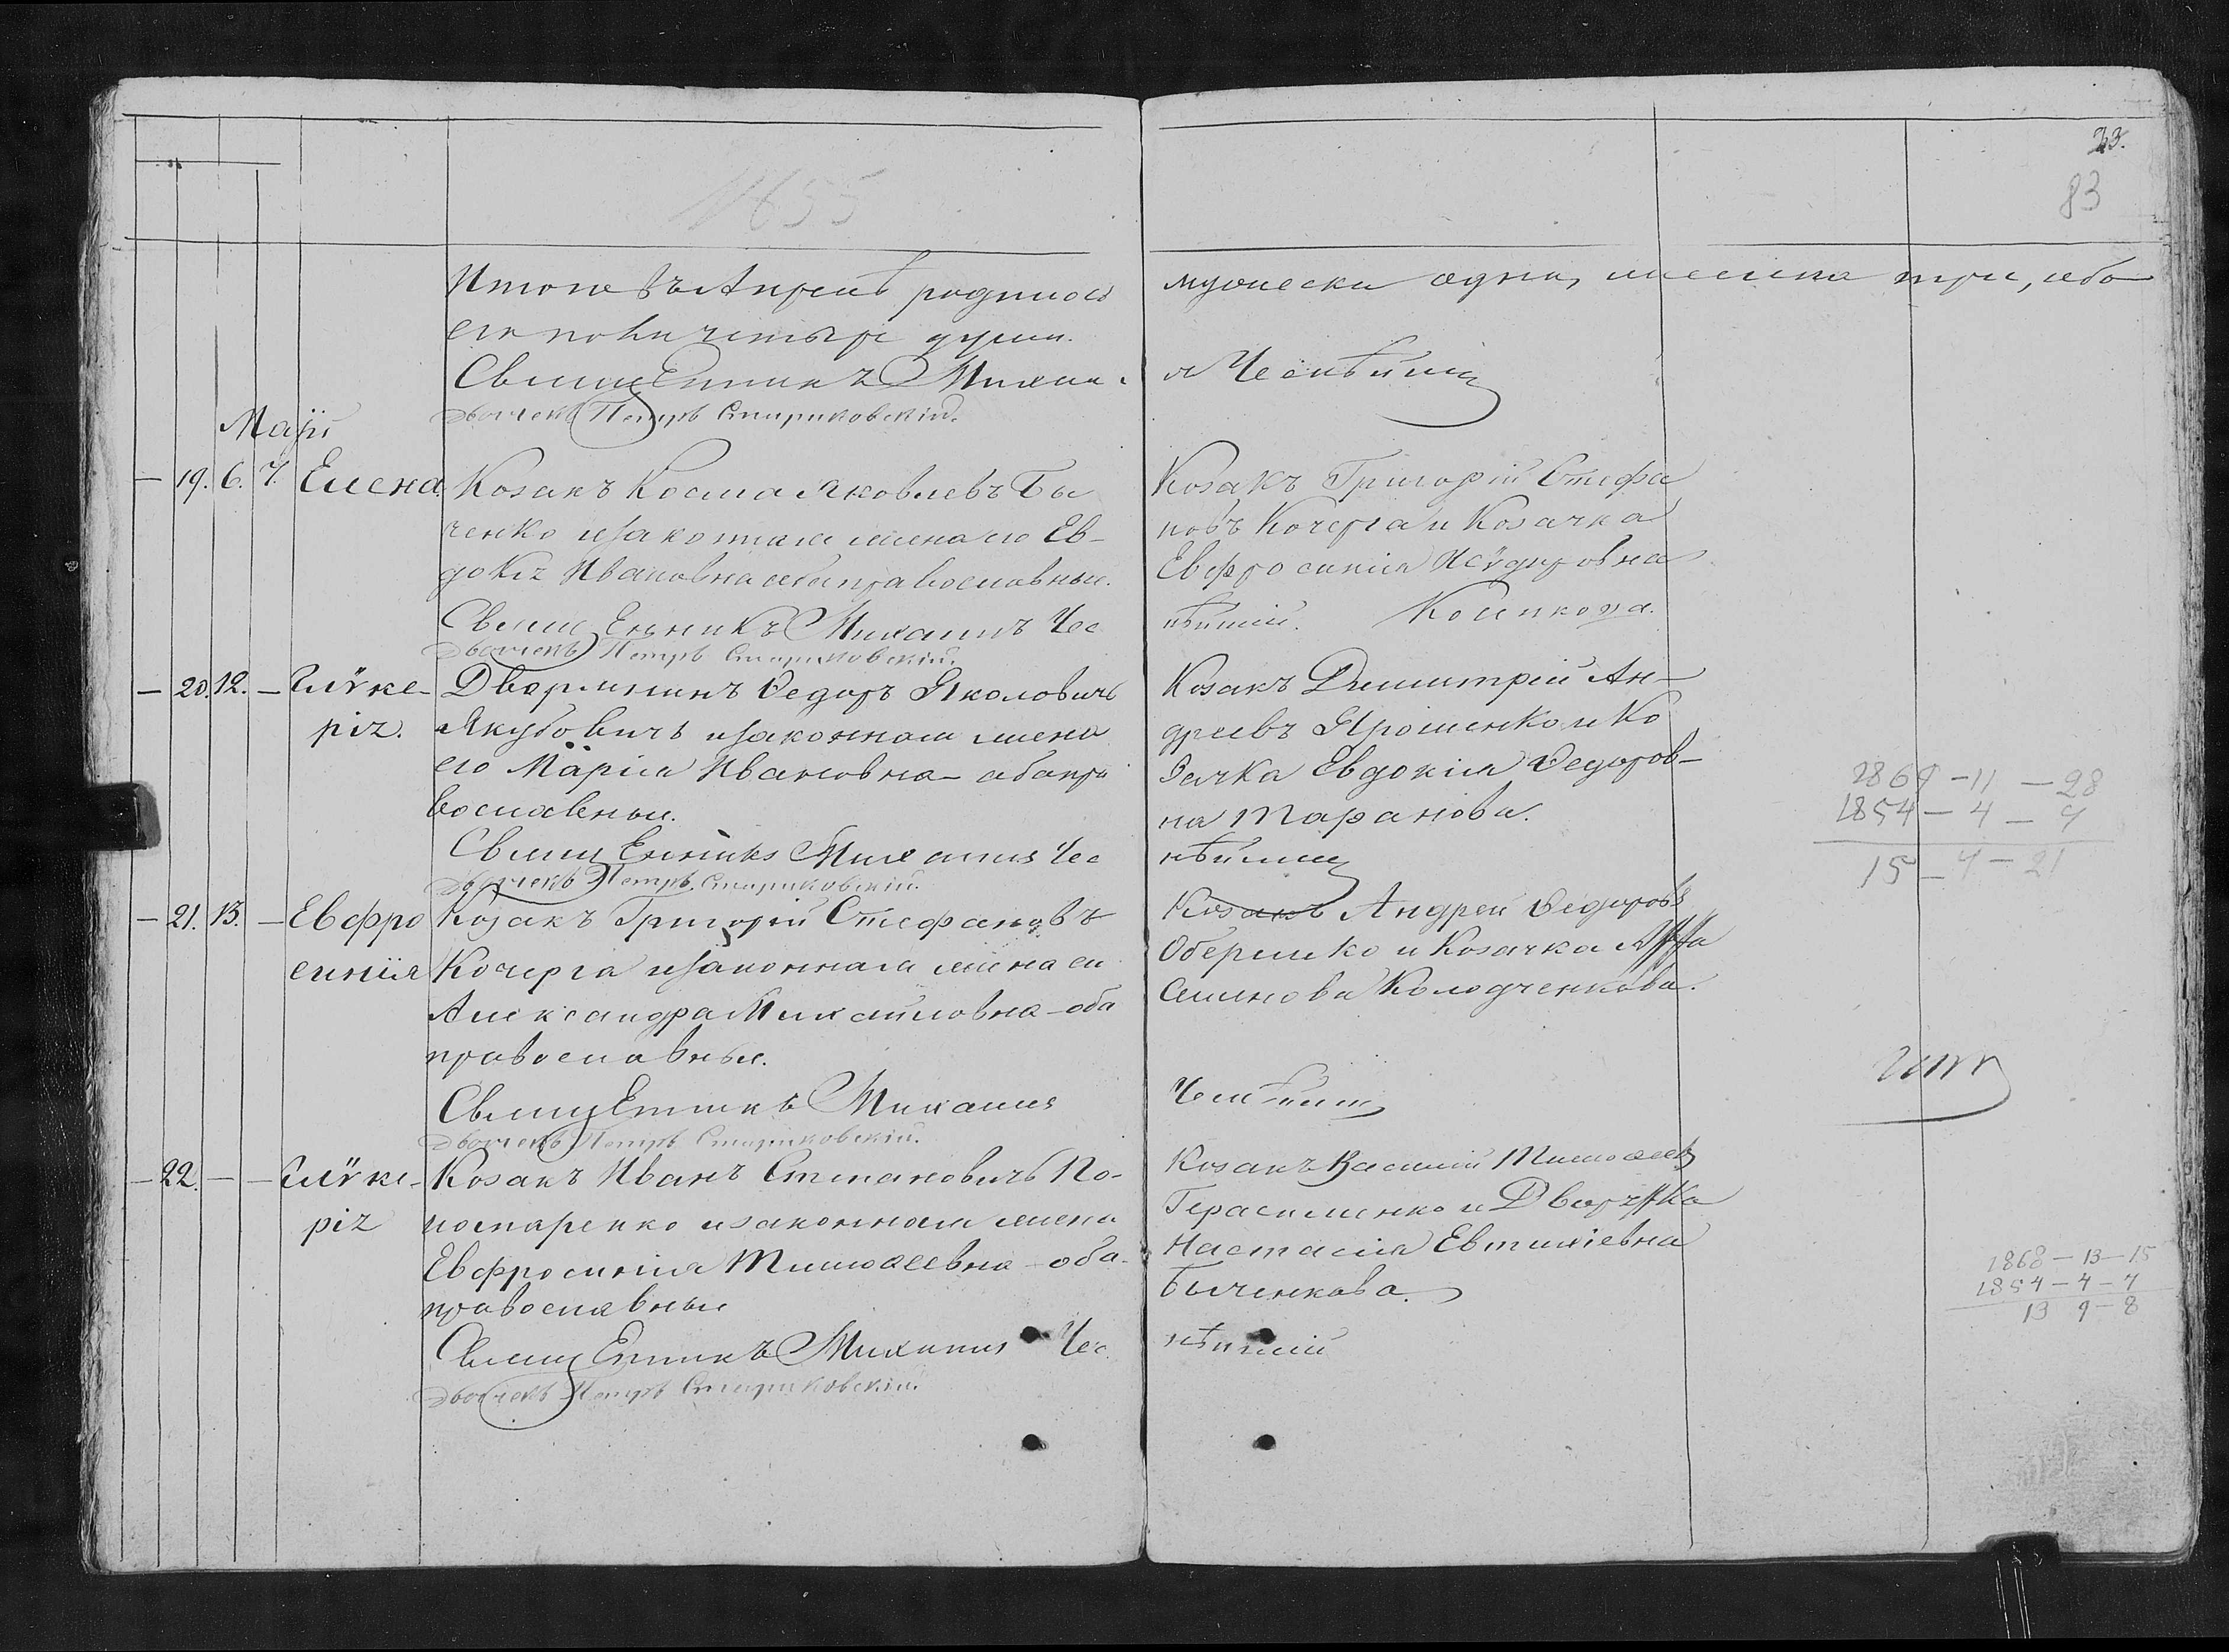 33.
83
1855
Итого въ Апрелѣ родилось
его пола четыре души.
Священникъ Михаи-
Дьячекъ Петръ Стариковскій.
мужеска одна, женска три, обо
л Чеснѣйшій
Маія
19. 6. 7. Елена
Козакъ Косма Яковлевъ Бы
ченко и законная жена его Ев-
докія Ивановна оба православные.
Священникъ Михаилъ Чес
Дьячекъ Петръ Стариковскій.
Козакъ Григорій Стефа
новъ Кочерга и Козачка
Евфросинія Исѵдировна
нѣйшій. Кошкова.
20. 12. — Глѵке-
рія.
Дворянинъ Ѳедоръ Яколовичъ
Якубовичъ и законная жена
его Марія Ивановна — оба пра
вославные.
Священникъ Михаилъ Чес
Дьячекъ Петръ Стариковскій.
Козакъ Димитрій Ан-
дреевъ Ярошенко и Ко
зачка Евдокія Ѳедоров-
на Таранова.
нѣйшій
1869 — 11 — 28
1854 — 4 — 7
15 — 7 — 21
21. 13. — Евфро
синія
Козакъ Григорій Стефановъ
Кочерга и законная жена его
Александра Михайловна — оба
православные.
Священникъ Михаилъ
Дьячекъ Петръ Стариковскій.
Козакъ Андрей Ѳедоровъ
Оберемко и Козачка
Семенова Колодченкова.
Чеснѣйшій
22. — — Глѵке-
рія
Козакъ Иванъ Степановичъ По-
номаренко и законная жена
Евфросинія Тимоѳеевна — оба
православные
Священникъ Михаилъ Чес
Дьячекъ Петръ Стариковскій.
Козакъ Василій Тимоѳеевъ
Герасименко и
Настасія Евтихіевна
Быченкова.
нѣйшій
1868 — 13 — 15
1854 — 4 — 7
13 9 — 8